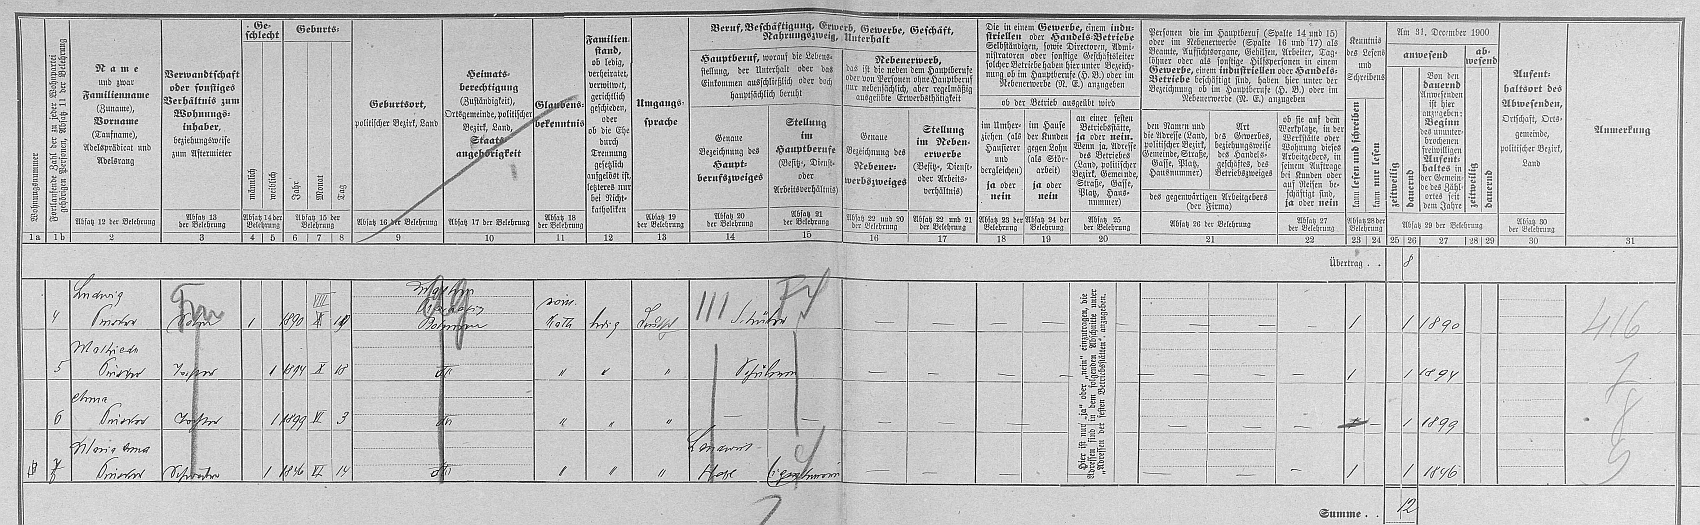 Wohnungsnummer
Fortlaufende Zahl der zu jeder Wohnpartei gehörigen Personen, Absatz 11 der Belehrung
Name
und zwar
Familienname
(Zuname),
Vorname
(Taufname),
Adelsprädicat und
Adelsrang
Verwandtschaft
oder sonstiges
Verhältnis zum
Wohnungs-
inhaber,
beziehungsweise
zum Aftermieter
Ge-
schlecht
männlich
weiblich
Geburts-
Jahr
Monat
Tag
Geburtsort,
politischer Bezirk, Land
Heimats-
berechtigung
(Zuständigkeit),
Ortsgemeinde, politischer
Bezirk, Land,
Staats-
angehörigkeit
Glaubens-
bekenntnis
Familien-
stand,
ob ledig,
verheiratet,
verwitwet,
gerichtlich
geschieden,
oder
ob die Ehe
durch
Trennung
gesetzlich
aufgelöst ist,
letzteres nur
bei Nicht-
katholiken
Umgangs-
sprache
Beruf, Beschäftigung, Erwerb, Gewerbe, Geschäft,
Nahrungszweig, Unterhalt
Hauptberuf, worauf die Lebens-
stellung, der Unterhalt oder das
Einkommen ausschließlich oder doch
hauptsächlich beruht
Genaue
Bezeichnung des
Haupt-
berufszweiges
Stellung
im
Hauptberufe
(Besitz-, Dienst-
oder
Arbeitsverhältnis)
Nebenerwerb,
das ist die neben dem Hauptberufe
oder von Personen ohne Hauptberuf
nur nebensächlich, aber regelmäßig
ausgeübte Erwerbsthätigkeit
Genaue
Bezeichnung des
Nebener-
werbszweiges
Stellung
im Neben-
erwerbe
(Besitz-, Dienst-
oder Arbeits-
verhältnis)
Die in einem Gewerbe, einem indu-
striellen oder Handels-Betriebe
Selbständigen, sowie Directoren, Admi-
nistratoren oder sonstige Geschäftsleiter
solcher Betriebe haben hier unter Bezeich-
nung ob im Hauptberufe (H. B.) oder im
Nebenerwerbe (N. E.) anzugeben
ob der Betrieb ausgeübt wird
im Umher-
ziehen (als
Hausierer
und
dergleichen)
ja oder
nein
im Hause
der Kunden
gegen Lohn
(als Stör-
arbeit)
ja oder
nein
an einer festen
Betriebsstätte,
ja oder nein.
Wenn ja, Adresse
des Betriebes
(Land, politischer
Bezirk, Gemeinde,
Straße, Gasse,
Platz, Haus-
nummer)
Personen die im Hauptberuf (Spalte 14 und 15)
oder im Nebenerwerbe (Spalte 16 und 17) als
Beamte, Aufsichtsorgane, Gehilfen, Arbeiter, Tag-
löhner oder als sonstige Hilfspersonen in einem
Gewerbe, einem industriellen oder Handels-
Betriebe beschäftigt sind, haben hier unter der
Bezeichnung ob im Hauptberufe (H. B.) oder im
Nebenerwerbe (N. E.) anzugeben
den Namen und
die Adresse (Land,
politischer Bezirk,
Gemeinde, Straße,
Gasse, Platz,
Hausnummer)
Art
des Gewerbes,
beziehungsweise
des Handels-
geschäftes, des
Betriebszweiges
des gegenwärtigen Arbeitgebers
(der Firma)
ob sie auf dem
Werkplatze, in der
Werkstätte oder
Wohnung dieses
Arbeitgebers, in
seinem Auftrage
bei Kunden oder
auf Reisen be-
schäftigt sind,
ja oder nein
Kenntnis
des Lesens
und
Schreibens
kann lesen und schreiben
kann nur lesen
Am 31. December 1900
anwesend
zeitweilig
dauernd
Von den
dauernd
Anwesenden
ist hier
anzugeben:
Beginn
des ununter-
brochenen
freiwilligen
Aufent-
haltes in
der Gemein-
de des Zähl-
ortes seit
dem Jahre
ab-
wesend
zeitweilig
dauernd
Aufent-
haltsort des
Abwesenden,
Ortschaft, Orts-
gemeinde,
politischer Bezirk,
Land
Anmerkung
Absatz 12 der Belehrung
Absatz 13 der Belehrung
Absatz 14 der Belehrung
Absatz 15 der Belehrung
Absatz 16 der Belehrung
Absatz 17 der Belehrung
Absatz 18 der Belehrung
Absatz 12 der Belehrung
Absatz 19 der Belehrung
Absatz 20 der Belehrung
Absatz 21 der Belehrung
Absatz 22 und 20 der Belehrung
Absatz 22 und 21 der Belehrung
Absatz 23 der Belehrung
Absatz 24 der Belehrung
Absatz 25 der Belehrung
Absatz 26 der Belehrung
Absatz 27 der Belehrung
Absatz 28 der Belehrung
Absatz 29 der Belehrung
Absatz 30 der Belehrung
1a 1b 2 3 4 5 6 7 8 9 10 11 12 13 14 15 16 17 18 19 20 21 22 23 24 25 26 27 28 29 30 31
Übertrag . . 8
Hier ist nur „ja“ oder „nein“ einzutragen, die
Adressen sind in dem folgenden Abschnitte unter
„Adressen der festen Betriebsstätten“ anzugeben.
Ludwig
4 Sohn 1 1890 Kath. ledig Schüler — — — — — — — 1 1 1890 416
5 Tochter 1 1894 X 18 " " " Schülerin — — — — — — — 1 1 1894 7
Anna
6 Tochter 1 1899 VI 3 " " " — — — — — — — — 1 1899 8
Maria Anna
Schwester 1 1846 VI 14 " " " — — — — — — — 1 1 1846 9
Summe . . 12